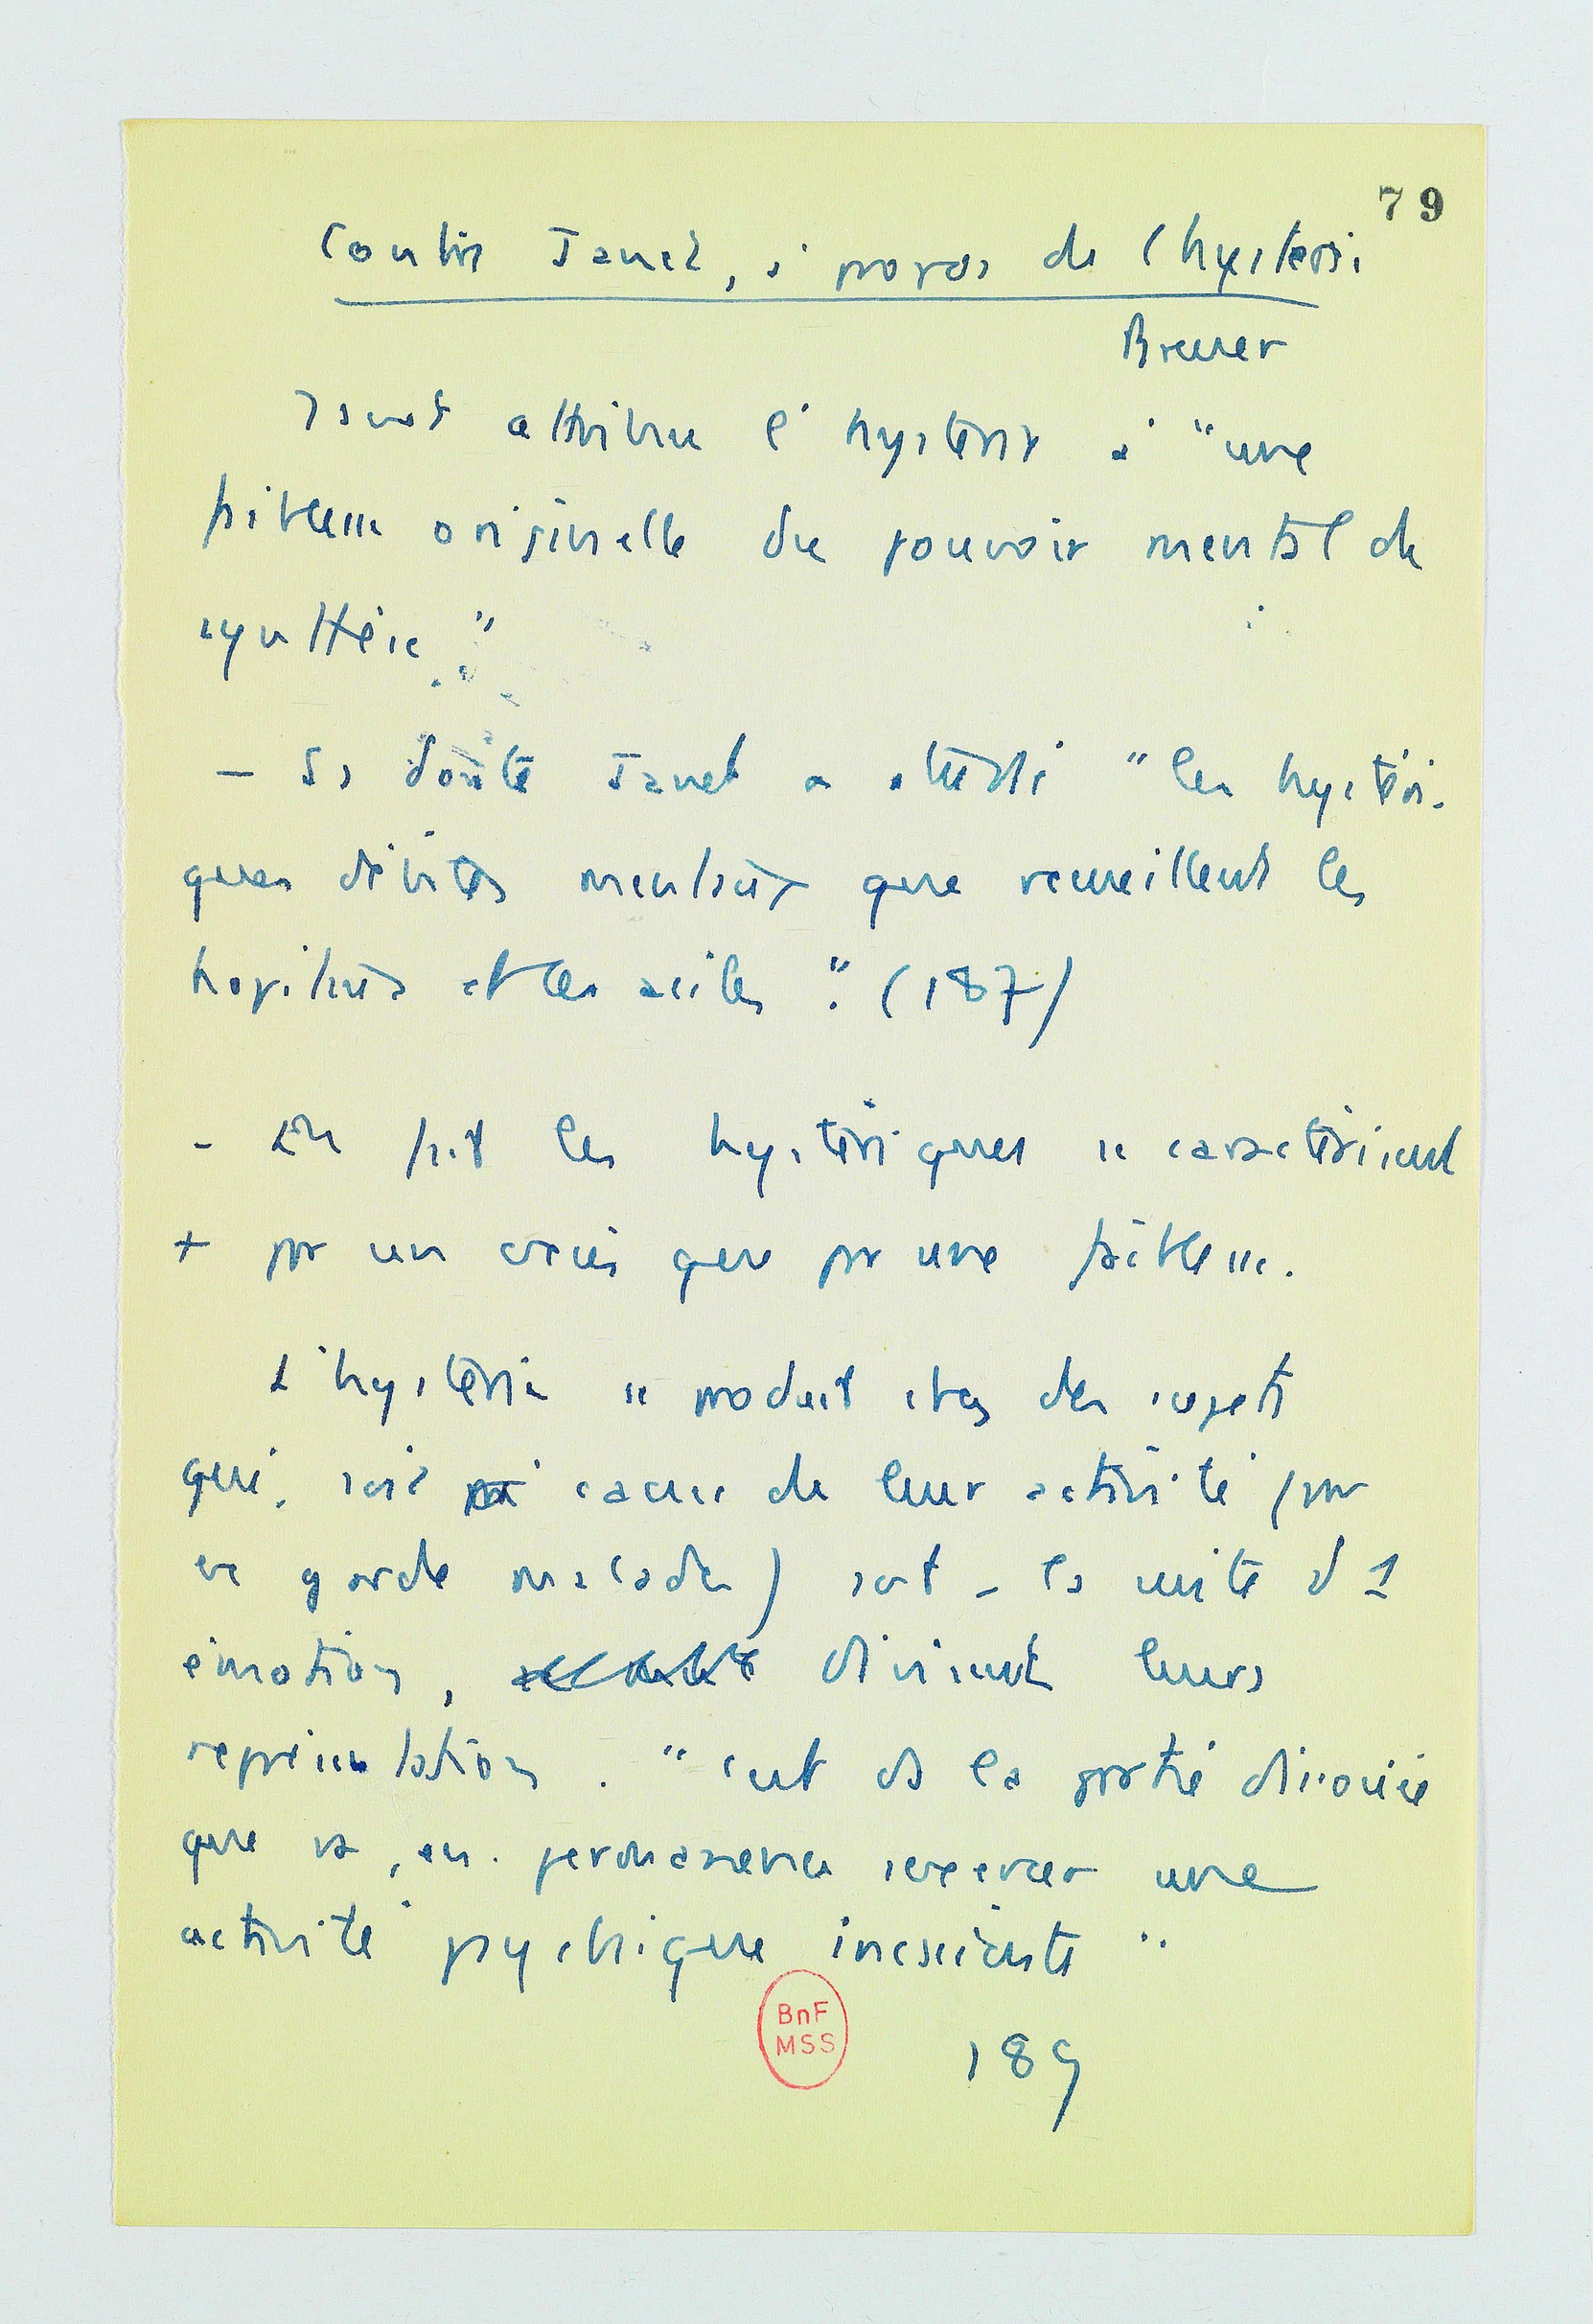 79
Contre Janet, à propos de l'hystérie
Breuer
Janet attribue l'hystérie à "une
faiblesse originelle du pouvoir mental de
synthèse."
– Ss doute Janet a étudié "les hystéri-
ques débiles mentaux que recueillent les
hôpitaux et les asiles". (187)
– En fait les hystériques se caractérisent
+ par un excès que par une faiblesse.
L'hystérie se produit chez des sujets
qui, soit à cause de leur activité (par
ex garde malades) soit à la suite d'1
émotion, divisent leurs
représentations. "c'est ds la partie dissociée
que va, en permanence s'exercer une
activité psychique inconsciente"
BnF
MSS
189